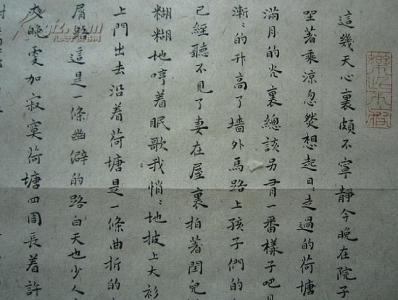 這幾天心裏頗不寧靜今晚在院子
坐著乘涼忽然想起日〻走過的荷塘
滿月的光裏總該另有一番樣子吧
漸〻的升高了墻外馬路上孩子們的
已經聽不見了妻在屋裏拍著閏兒
糊糊地哼着眠歌我悄〻地披上大衫
上門出去沿着荷塘是一條曲折的
屑路這是一條幽僻的路白天也少人
夜晚更加寂寞荷塘四圍長着許